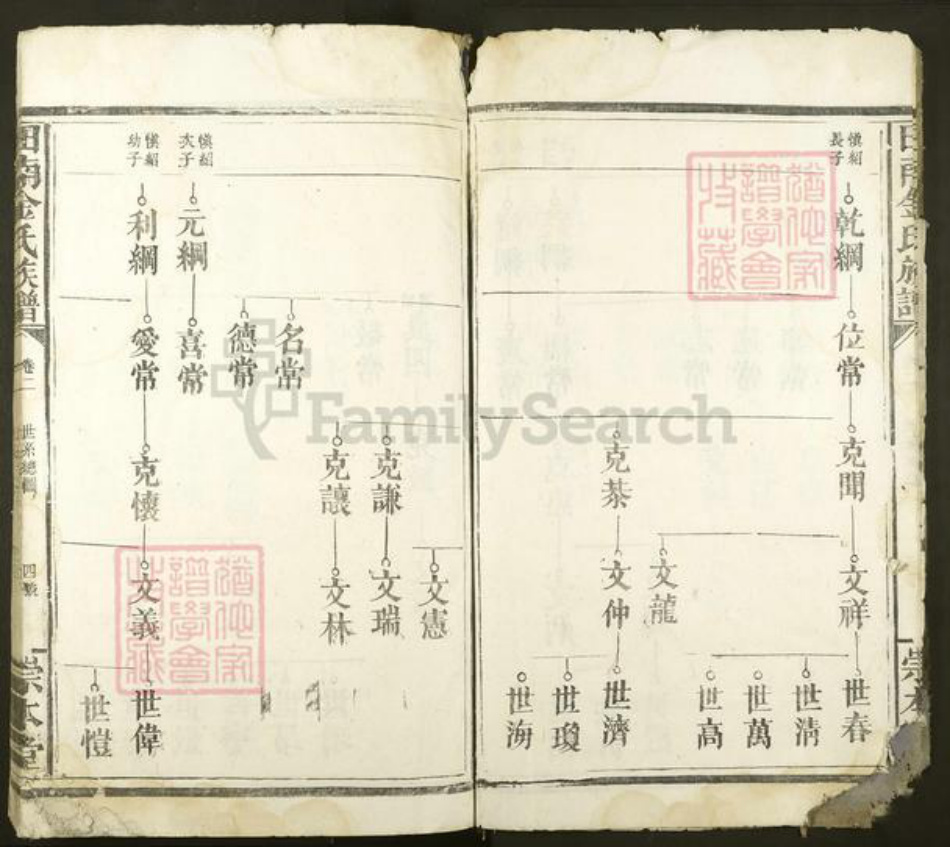 田南金氏族譜
崇本堂
慎紹
長子
乾綱
位常
克聞
文祥
世春
世淸
世萬
世高
文龍
克恭
文仲
世濟
世瓊
世海
文憲
克謙
文瑞
克讓
文林
名常
德常
慎紹
次子
元綱
喜常
慎紹
幼子
利綱
愛常
克懷
文義
世偉
世愷
田南金氏族譜
卷二
世系總圖
四
崇本堂
猶他家
譜學會
收藏
猶他家
譜學會
收藏
FamilySearch